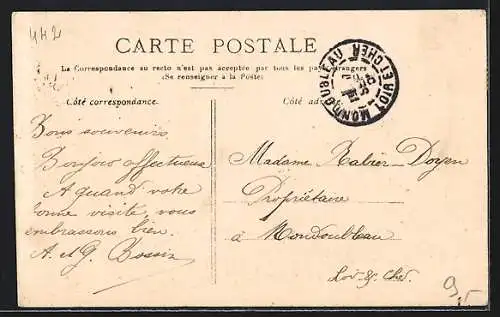 442
CARTE POSTALE
La Correspondance au recto n'est pas acceptée par tous les pays étrangers
(Se renseigner à la Poste)
MONDOUBLEAU
LOIR ET CHER
Côté correspondance.
Côté
Bons souvenirs
Bonjour affectueux
A quand votre
bonne visite, vous
embrassons bien.
A. et G. Bossin
Madame Rabier-Doyen
Propriétaire
à Mondoubleau
Loir-&-Cher